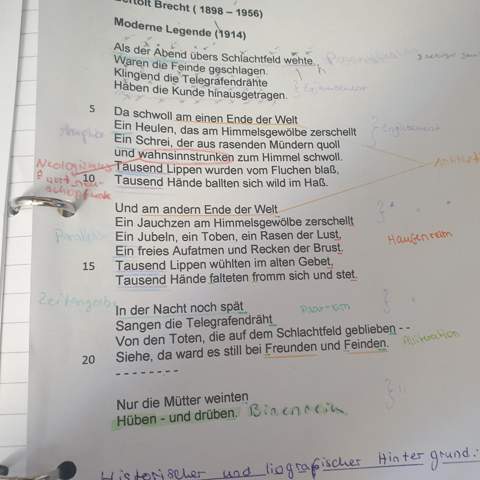 Bertolt Brecht ( 1898 – 1956)
Moderne Legende (1914)
Als der Abend übers Schlachtfeld wehte,
Waren die Feinde geschlagen.
Klingend die Telegrafendrähte
Haben die Kunde hinausgetragen.
5 Da schwoll am einen Ende der Welt
Ein Heulen, das am Himmelsgewölbe zerschellt
Ein Schrei, der aus rasenden Mündern quoll
und wahnsinnstrunken zum Himmel schwoll.
Neologismus
Tausend Lippen wurden vom Fluchen blaß,
10 Tausend Hände ballten sich wild im Haß.
Und am andern Ende der Welt
Ein Jauchzen am Himmelsgewölbe zerschellt
Ein Jubeln, ein Toben, ein Rasen der Lust,
Haufenreim
Ein freies Aufatmen und Recken der Brust.
15 Tausend Lippen wühlten im alten Gebet,
Tausend Hände falteten fromm sich und stet.
Zeitangabe
In der Nacht noch spät
Paarreim
Sangen die Telegrafendräht
Von den Toten, die auf dem Schlachtfeld geblieben - -
Aliteration
20 Siehe, da ward es still bei Freunden und Feinden.
- - - - - - - -
Nur die Mütter weinten
Hüben - und drüben. Binnenreim
Historischer und biografischer Hintergrund: